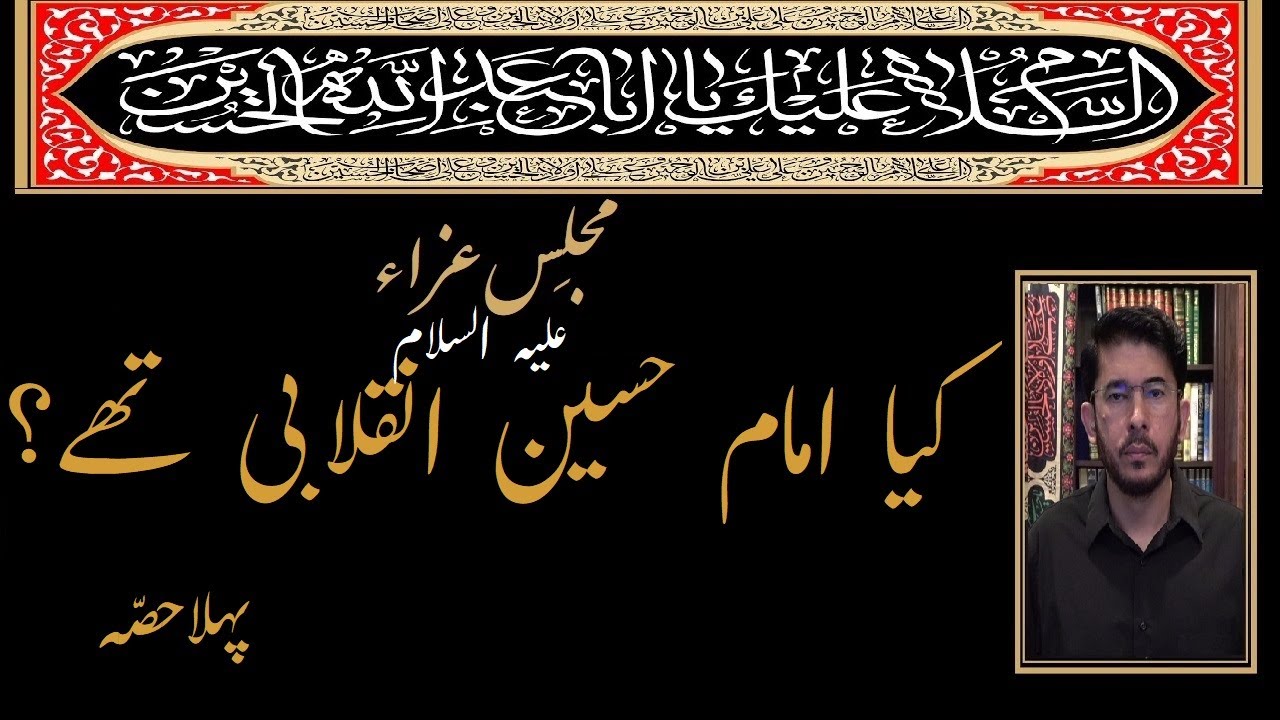 السَّلامُ عَلَيْكَ يا اَبا عَبْدِ اللهِ الْحُسَيْن
مجلسِ عزاء
علیہ السلام
کیا امام حسین انقلابی تھے؟
پہلا حصّہ